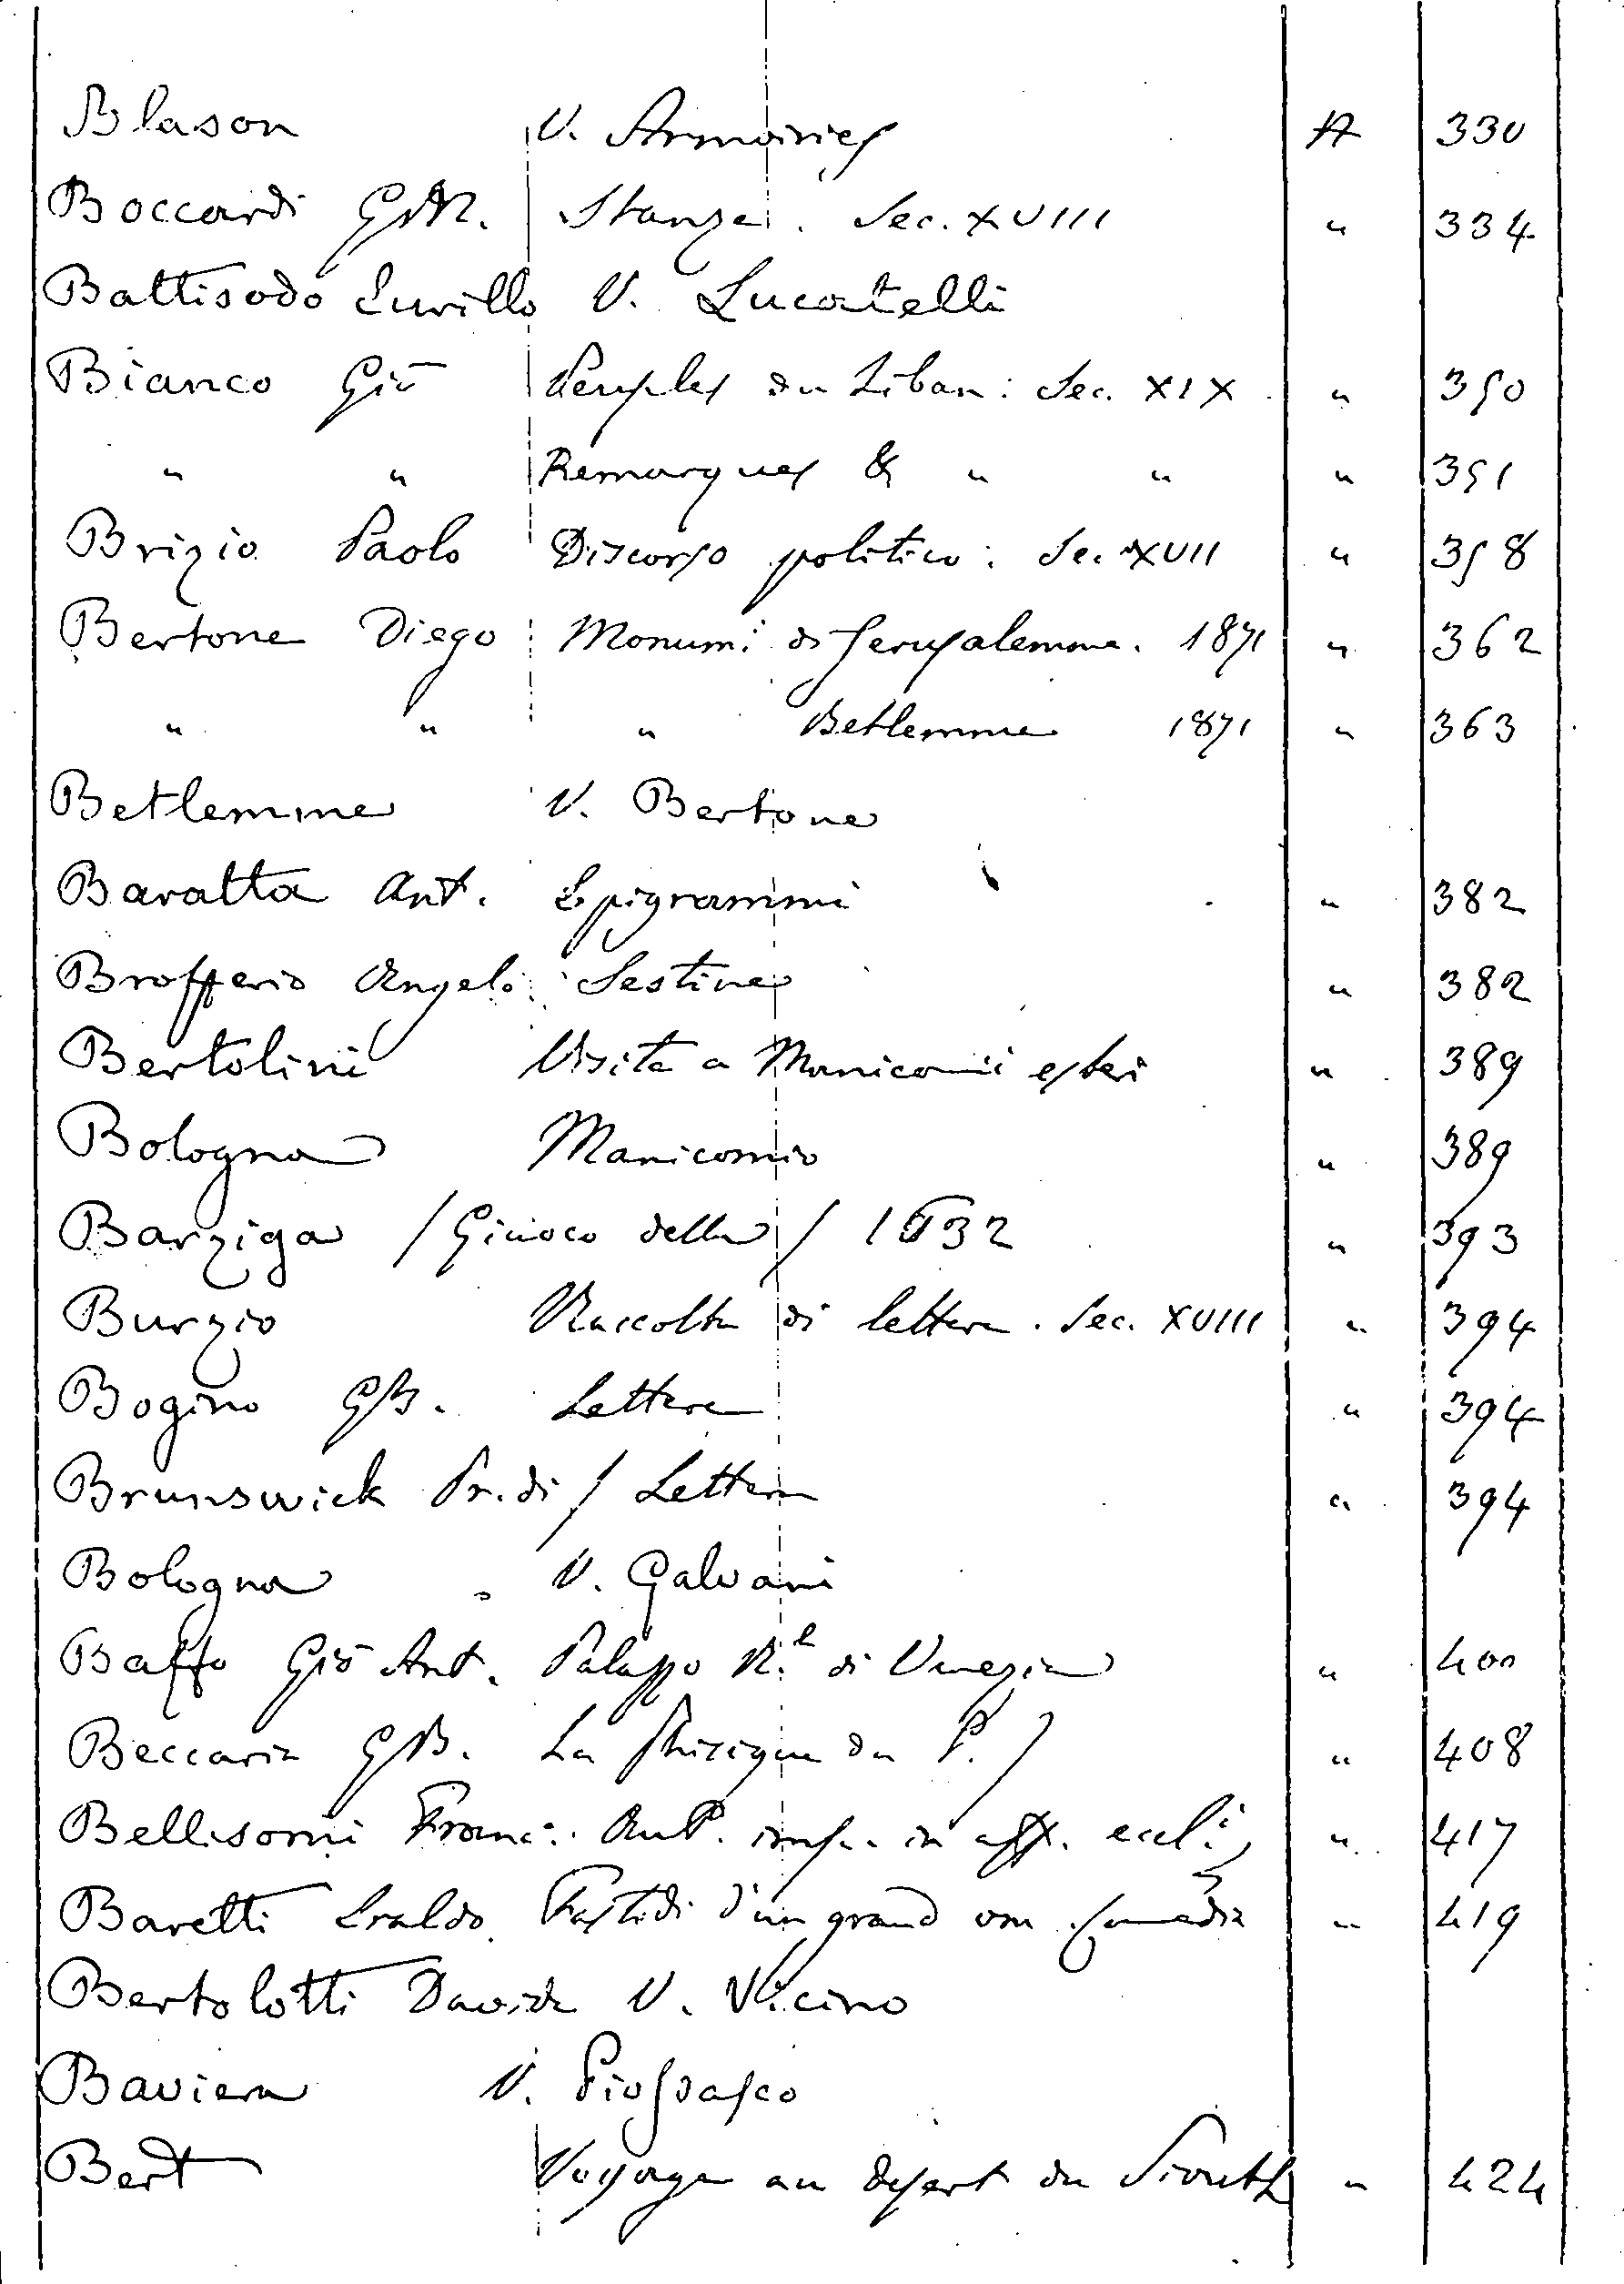 Blason V. Armoiries A 330
Boccardi GM. Stanze. Sec. XVIII " 334
Battisodo Eurillo V. Lucatelli
Bianco Giō Peuples du Liban: Sec. XIX " 350
" " Remarques & " " " 351
Brizio Paolo Discorso politico: Sec. XVII " 358
Bertone Diego Monumi di Gerusalemme. 1871 " 362
" " " Betlemme 1871 " 363
Betlemme V. Bertone
Baratta Ant. Epigrammi " 382
Brofferio Angelo Sestine " 382
Bertolini Visita a Manicomii esteri " 389
Bologna Manicomio " 389
Barziga / Giuoco della / 1632 " 393
Burzio Raccolta di lettere. Sec. XVIII " 394
Bogino GB. Lettere " 394
Brunswick Pr. di / Lettere " 394
Bologna V. Galvani
Baffo Giō Ant. Palazzo R.l di Venezia " 400
Beccaria GB. La Phisique du P. " 408
Bellisomi Franc. Aut. in aff. eccl.i " 417
Baretti Eraldo Fastidi d'un grand om Comedia " 419
Bertolotti Davide V. Vicino
Baviera V. Piossasco
Bert Voyage au desert du Siouth " 424